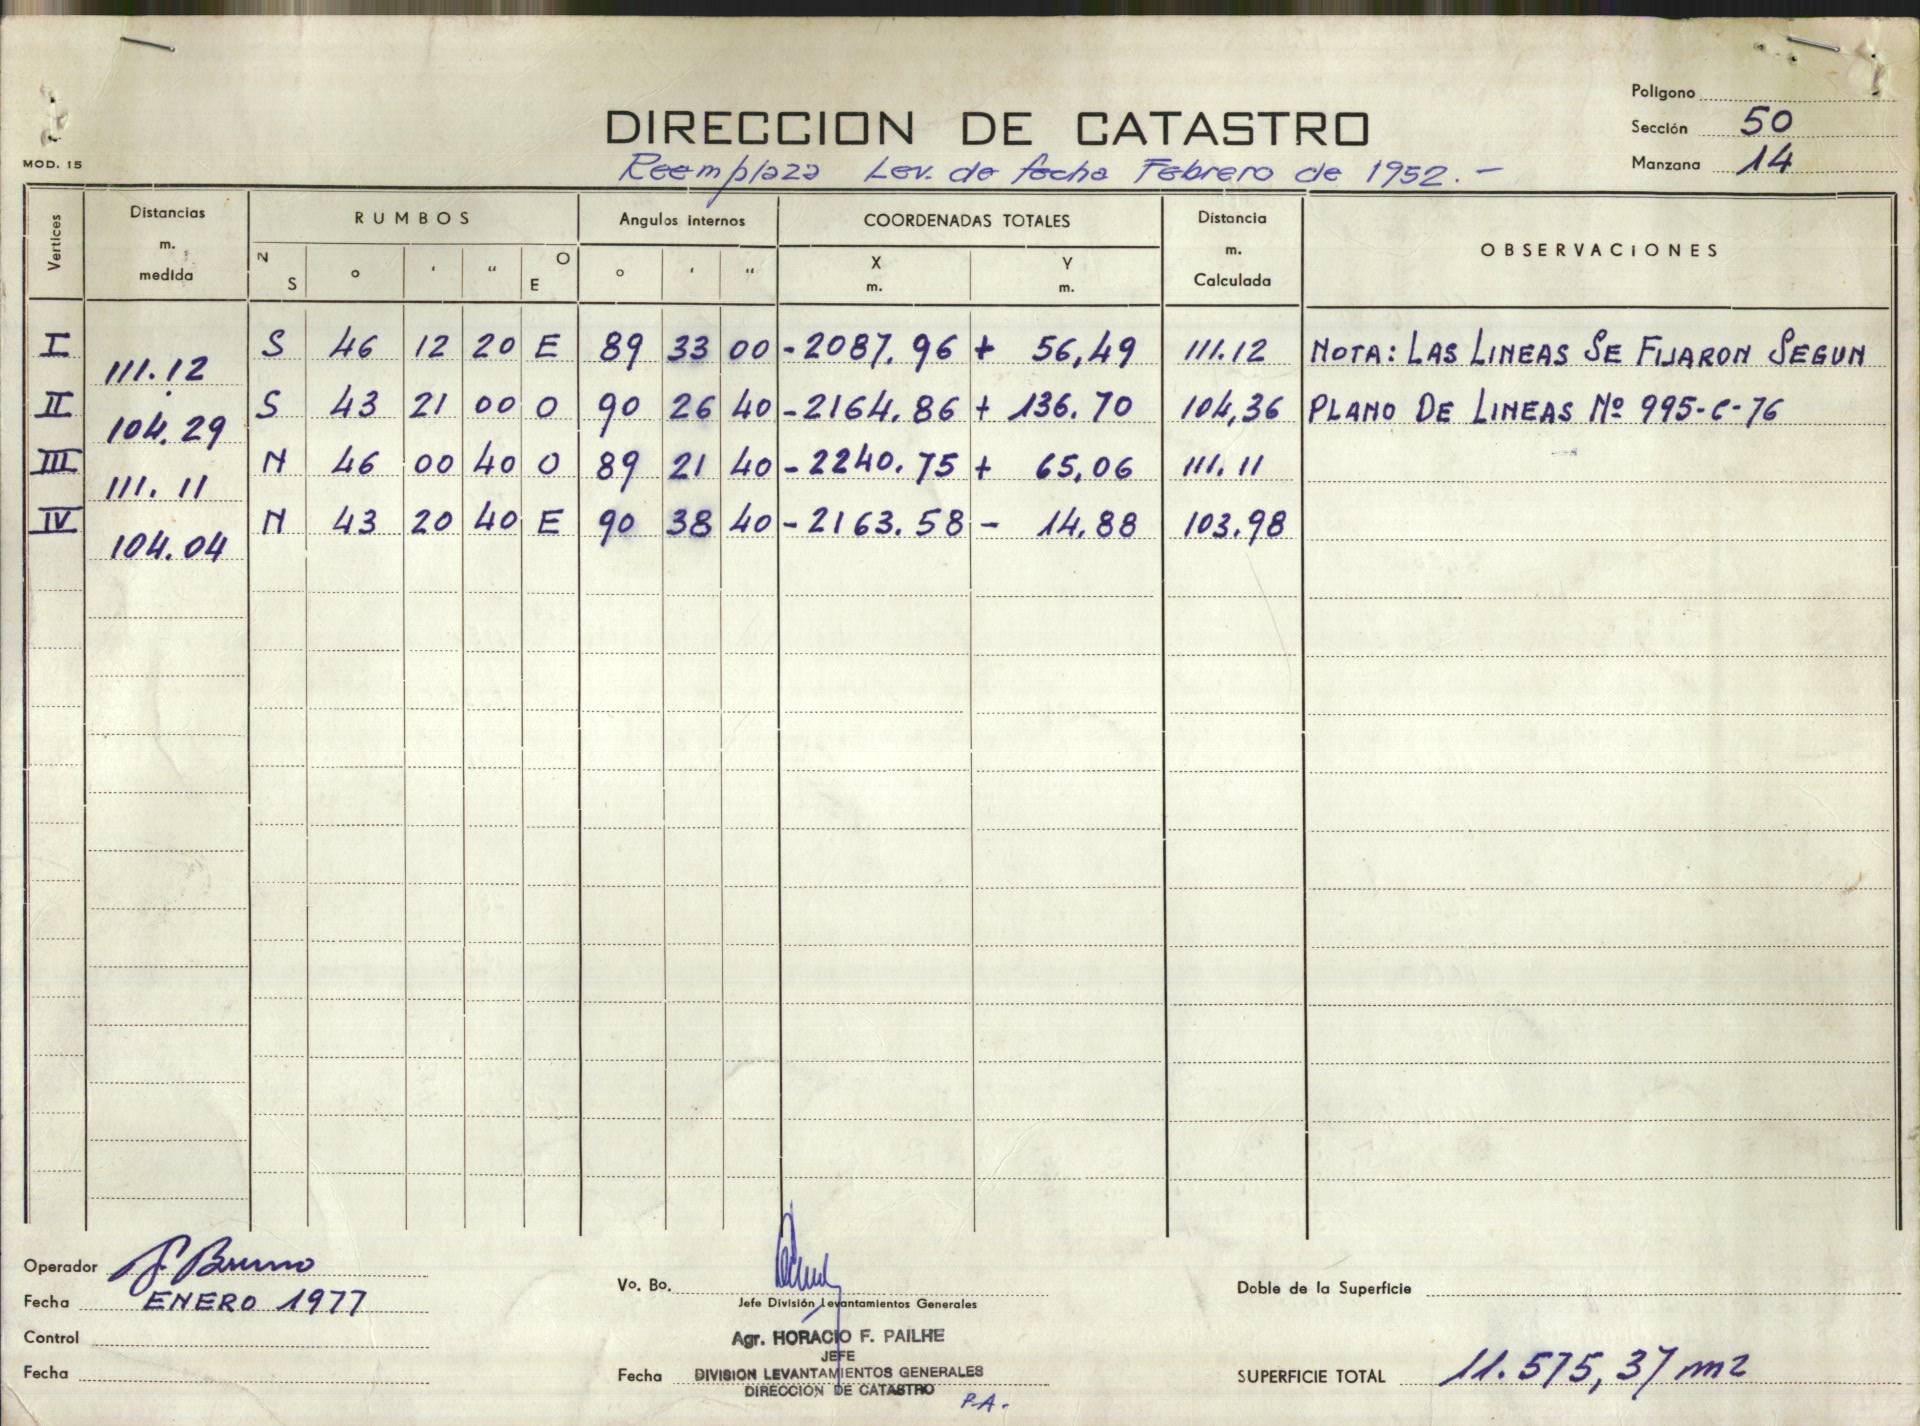 DIRECCION DE CATASTRO
Reemplaza Lev. de fecha Febrero de 1952.-
Polígono
Sección 50
Manzana 14
MOD. 15
Vertices Distancias m. medida RUMBOS Angulos internos COORDENADAS TOTALES Distancia m. Calculada OBSERVACIONES
N S ° ' " O E ° ' " X m. Y m.
I 111.12 S 46 12 20 E 89 33 00 -2087.96 + 56,49 111.12 NOTA: LAS LINEAS SE FIJARON SEGUN
II 104.29 S 43 21 00 O 90 26 40 -2164.86 + 136.70 104,36 PLANO DE LINEAS Nº 995-C-76
III 111.11 N 46 00 40 O 89 21 40 -2240.75 + 65,06 111.11
IV 104.04 N 43 20 40 E 90 38 40 -2163.58 - 14.88 103.98
Operador Bruno
Fecha ENERO 1977
Control
Fecha
Vo. Bo.
Jefe División Levantamientos Generales
Agr. HORACIO F. PAILHE
JEFE
Fecha DIVISION LEVANTAMIENTOS GENERALES
DIRECCIÓN DE CATASTRO
P.A.-
Doble de la Superficie
SUPERFICIE TOTAL 11.575,37 m2